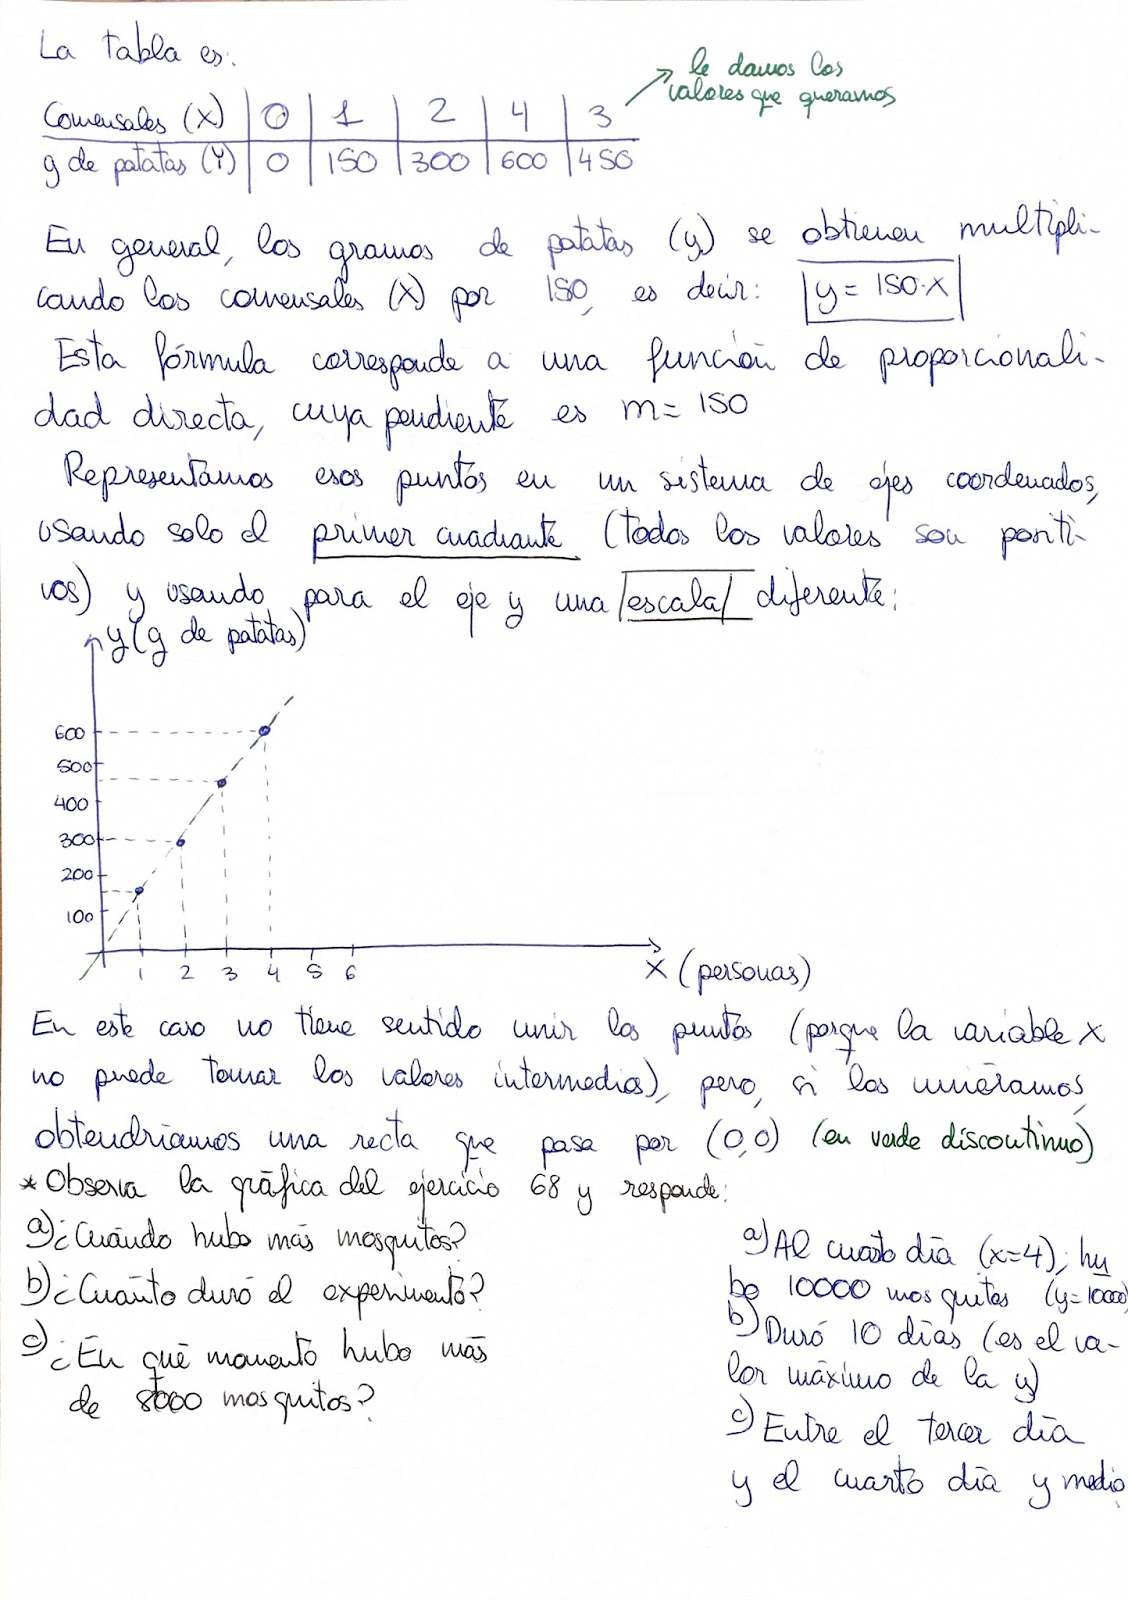 La tabla es:
le damos los
valores que queramos
Comensales (X) | 0 | 1 | 2 | 4 | 3
g de patatas (Y) | 0 | 150 | 300 | 600 | 450
En general, los gramos de patatas (y) se obtienen multipli-
cando los comensales (X) por 150, es decir: y = 150·X
Esta fórmula corresponde a una función de proporcionali-
dad directa, cuya pendiente es m = 150
Representamos esos puntos en un sistema de ejes coordenados,
usando solo el primer cuadrante (todos los valores son positi-
vos) y usando para el eje y una escala diferente:
y (g de patatas)
600
500
400
300
200
100
1 2 3 4 5 6
X (personas)
En este caso no tiene sentido unir los puntos (porque la variable X
no puede tomar los valores intermedios), pero, si los uniéramos,
obtendríamos una recta que pasa por (0,0) (en verde discontinuo)
* Observa la gráfica del ejercicio 68 y responde:
a) ¿Cuándo hubo más mosquitos?
b) ¿Cuánto duró el experimento?
c) ¿En qué momento hubo más
de 8000 mosquitos?
a) Al cuarto día (x=4), hu
bo 10000 mosquitos (y=10000)
b) Duró 10 días (es el va-
lor máximo de la y)
c) Entre el tercer día
y el cuarto día y medio